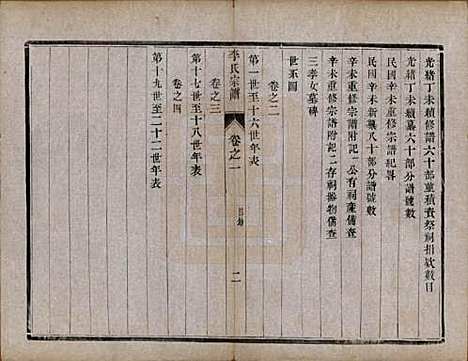 光緒丁未續修譜六十部並積賚祭祠捐欵數目
光緒丁未續纂六十部分譜號數
民國辛未重修宗譜紀畧
民國辛未新纂八十部分譜號數
辛未重修宗譜附記一公有祠產備查
辛未重修宗譜附記二存祠器物備查
三孝女墓碑
世系圖
卷之二
第一世至十六世年表
李氏宗譜
卷之一
目錄
二
卷之三
第十七世至十八世年表
卷之四
第十九世至二十二世年表